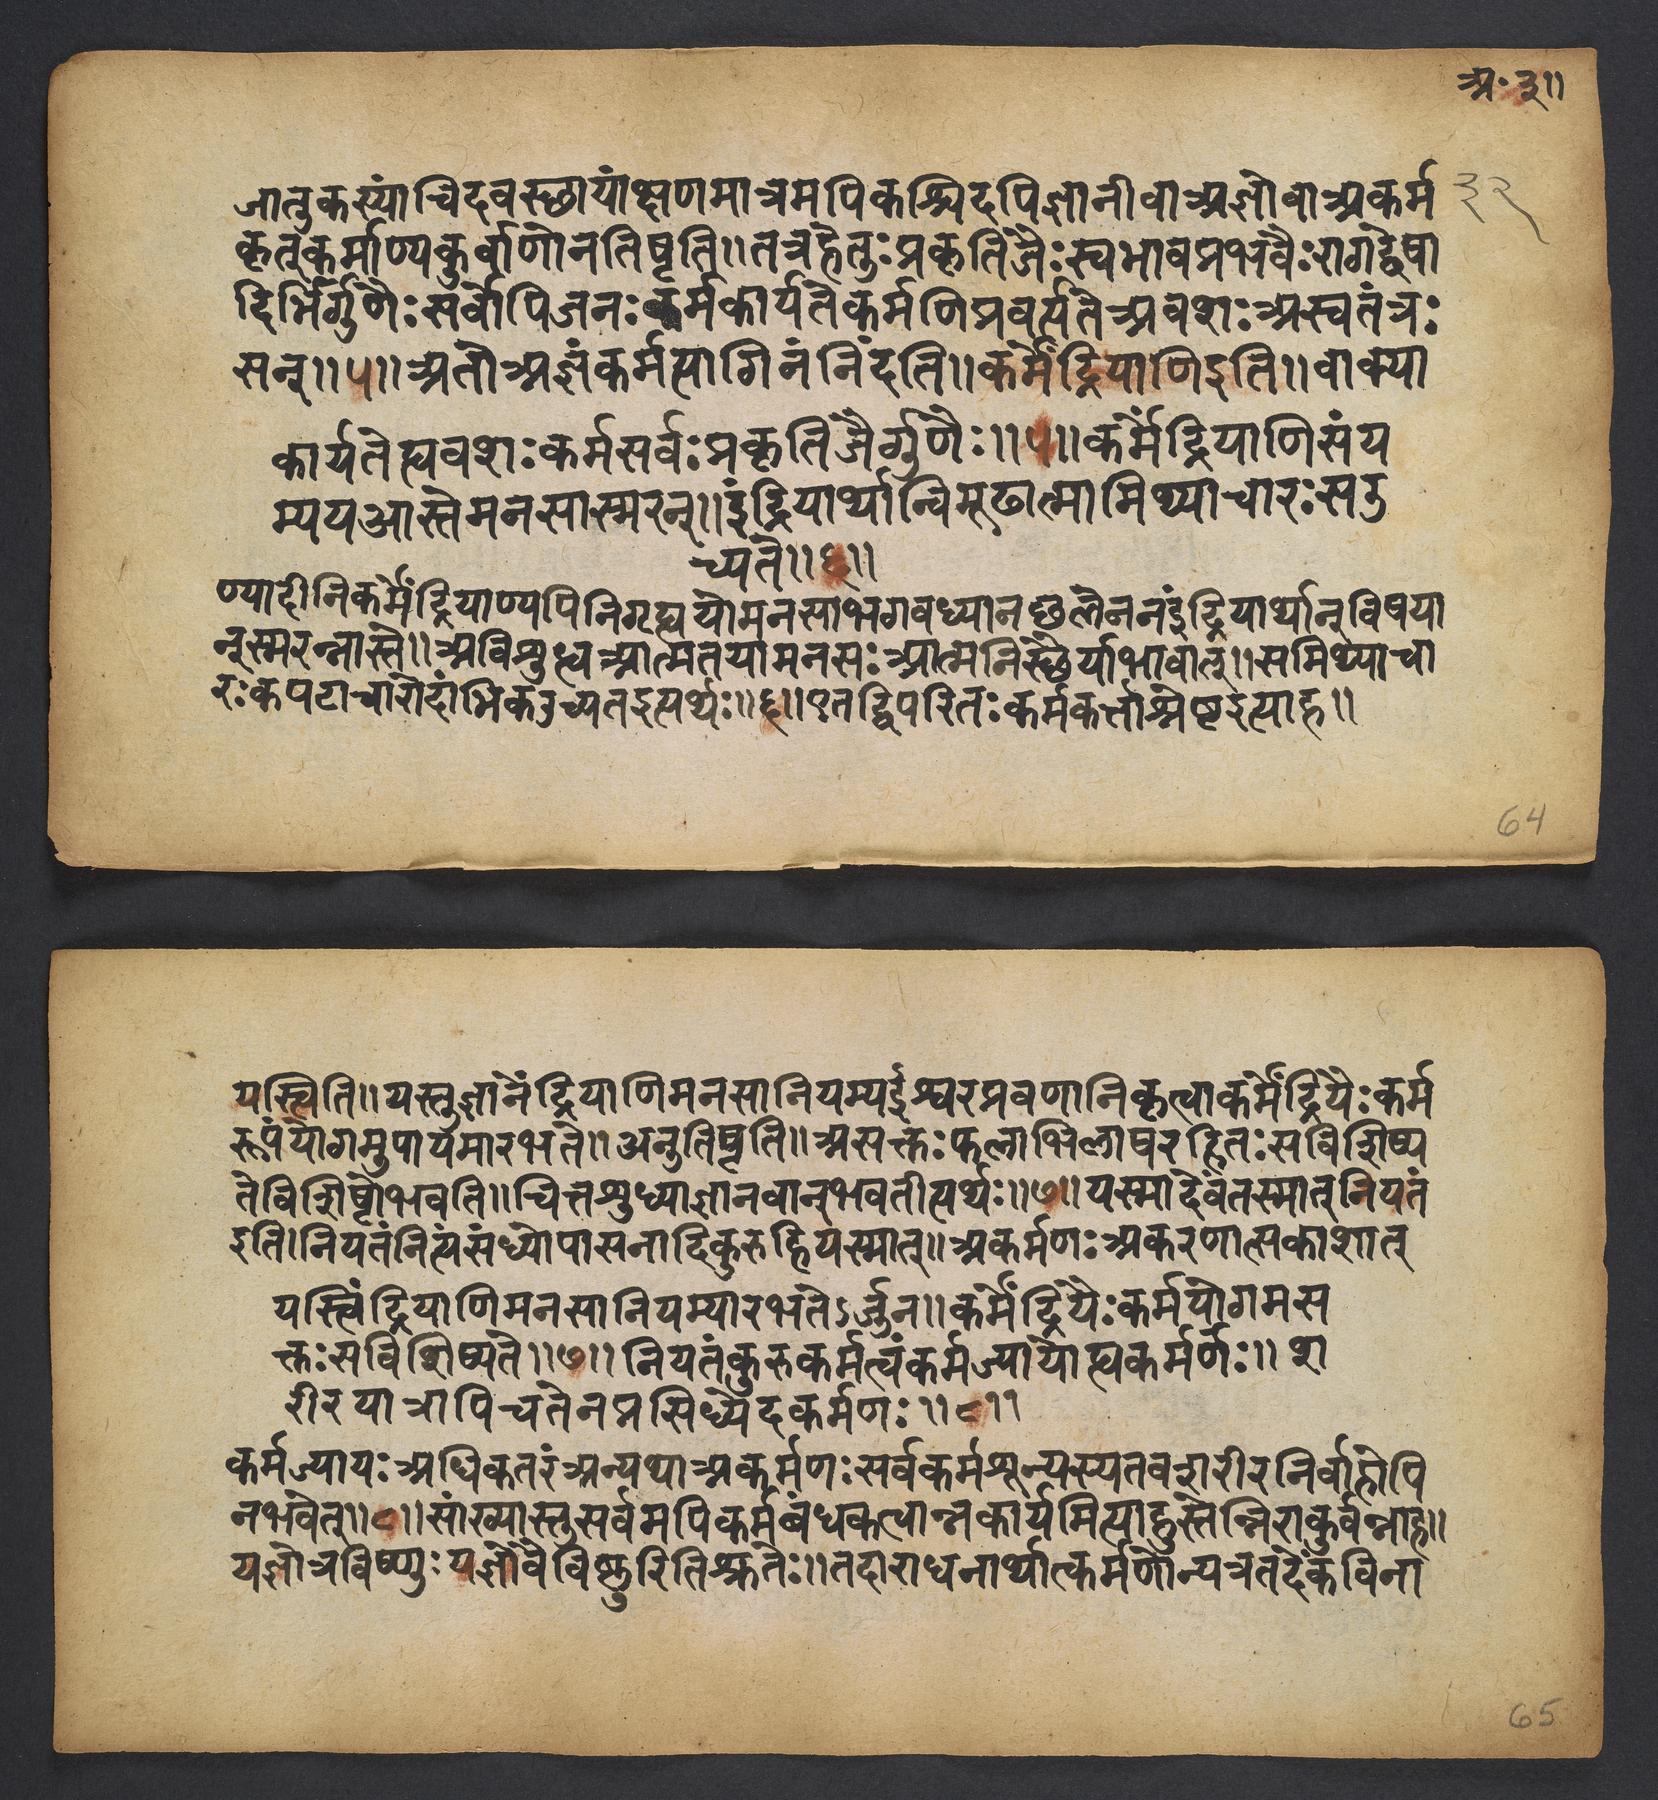 अ॰ ३॥
जातुकस्यांचिदवस्छायांक्षणमात्रमपिकश्चिदपिज्ञानीवाअज्ञोवाअकर्म
३२
कृत्कर्माण्यकुर्वाणोनतिष्टति॥तत्रहेतुःप्रकृतिजैःस्वभावप्रभवैःरागद्वेषा
दिभिर्गुणैःसर्वोपिजनःकर्मकार्यतेकर्मणिप्रवर्त्यतेअवशःअस्वतंत्रः
सन्॥५॥अतोअज्ञंकर्मत्यागिनंनिंदति॥कर्मेंद्रियाणिइति॥वाक्पा
कार्यतेह्यवशःकर्मसर्वःप्रकृतिजैर्गुणैः॥५॥कर्मेंद्रियाणिसंय
म्यययआस्तेमनसास्मरन्॥इंद्रियार्थान्विमूढात्मामिथ्याचारःसउ
च्यते॥६॥
ण्यादीनिकर्मेंद्रियाण्यपिनिगृह्ययोमनसाभगवध्यानछलेननंइंद्रियार्थान्विषया
न्स्मरन्नास्ते॥अविशुध्वआत्मतयामनसःआत्मनिस्छैर्याभावात्॥समिथ्याचा
रःकपटाचारोदांभिकउच्यतइत्यर्थः॥६॥एतद्विपरितःकर्मकर्त्ताश्रेष्टइत्याह॥
64
यस्त्विति॥यस्तुज्ञानेंद्रियाणिमनसानियम्यईश्वरप्रवणानिकृत्वाकर्मेंद्रियैःकर्म
रूपंयोगमुपायमारभते॥अनुतिष्टति॥असक्तःफलाभिलाषरहितःसविशिष्य
तेविशिष्टोभवति॥चित्तशुध्याज्ञानवान्भवतीत्यर्थः॥७॥यस्मादेवंतस्मात्नियतं
इति।नियतंनित्यंसंध्योपासनादिकुरुहियस्मात्॥अकर्मणःअकरणात्सकाशात्
यस्त्विंद्रियाणिमनसानियम्यारभतेऽर्जुन॥कर्मेंद्रियैःकर्मयोगमस
क्तःसविशिष्यते॥७॥नियतंकुरुकर्मत्वंकर्मज्यायोह्यकर्मणेः॥श
रीरयात्रापिचतेनप्रसिध्येदकर्मणः॥८॥
कर्मज्यायःअधिकतरंअन्यथाअकर्मणःसर्वकर्मशून्यस्यतवशरीरनिर्वाहोपि
नभवेत्॥८॥सांख्यास्तुसर्वमपिकर्मबंधकत्वान्नकार्यमित्याहुस्तन्निराकुर्वन्नाह॥
यज्ञोत्रविष्णुःयज्ञोवैविष्णुरितिश्रुतेः॥तदाराधनार्थात्कर्मणोन्यत्रतदेकंविना
65